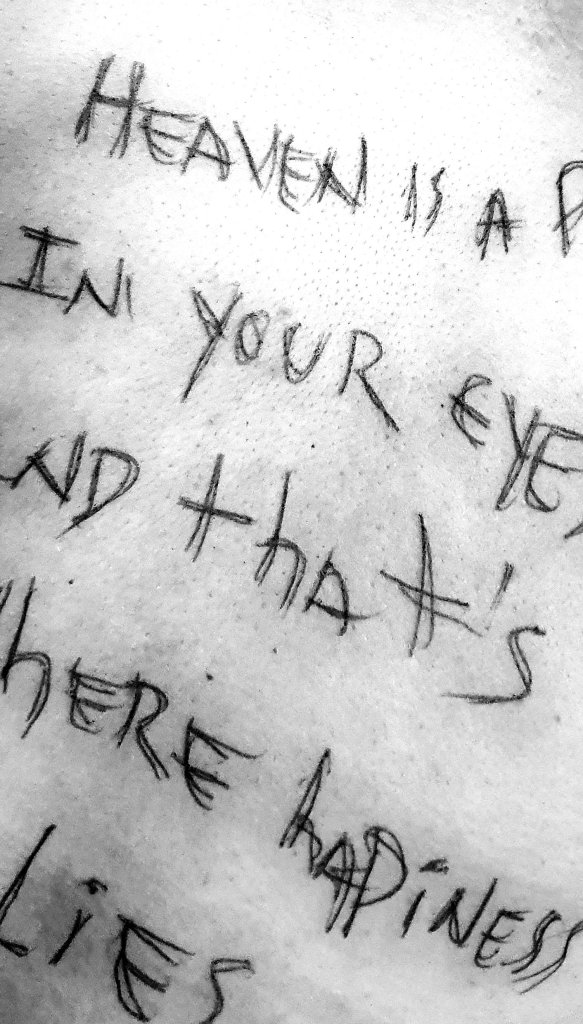 HEAVEN IS A
IN YOUR EYE
ND thAt's
here hAPiNESS
LiES